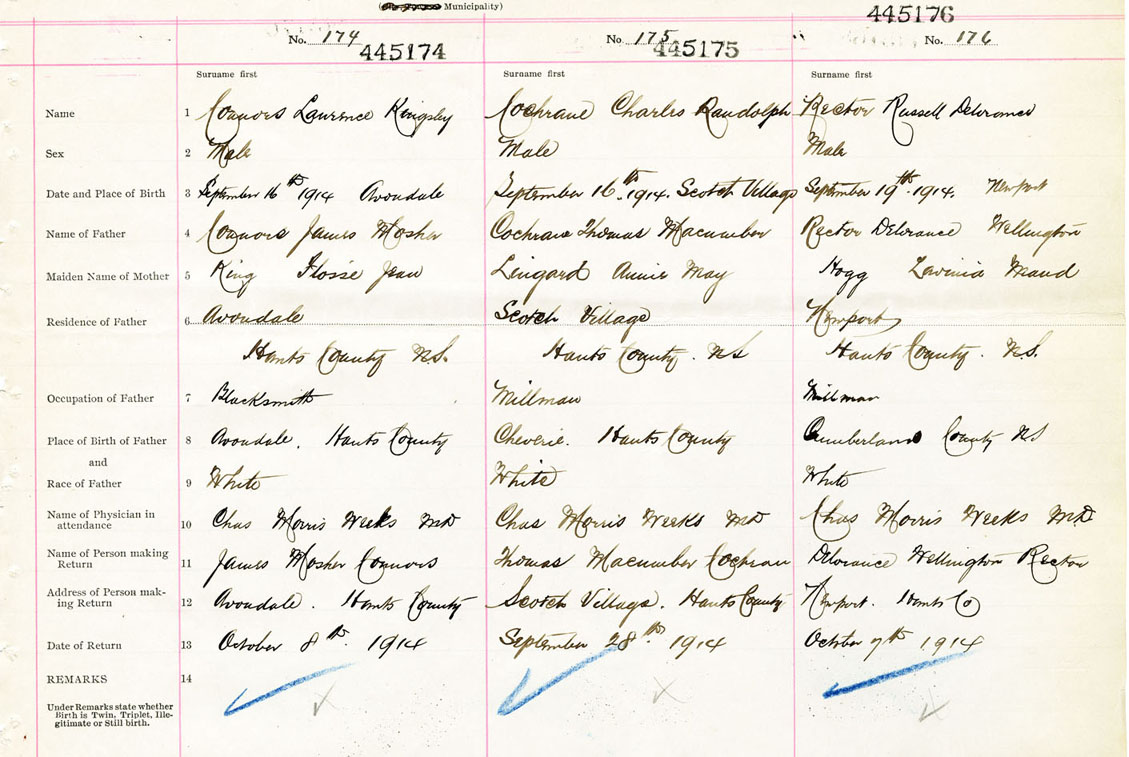 Municipality)
445176
No. 174 No. 175 No. 176
445174 445175
Surname first Surname first Surname first
Name 1 Connors Lawrence Kingsley Cochrane Charles Randolph Rector Russell Delorance
Sex 2 Male Male Male
Date and Place of Birth 3 September 16th 1914 Avondale September 16th. 1914. Scotch Village September 19th. 1914. Newport
Name of Father 4 Connors James Mosher Cochrane Thomas Macumber Rector Delorance Wellington
Maiden Name of Mother 5 King Flossie Jean Lingard Annie May Hogg Lavinia Maud
Residence of Father 6 Avondale Scotch Village Newport
Hants County N.S. Hants County. NS Hants County. N.S.
Occupation of Father 7 Blacksmith Millman Millman
Place of Birth of Father 8 Avondale. Hants County Cheverie. Hants County Cumberland County NS
and
Race of Father 9 White White White
Name of Physician in
attendance 10 Chas Morris Weeks MD Chas Morris Weeks MD Chas Morris Weeks MD.
Name of Person making
Return 11 James Mosher Connors Thomas Macumber Cochran Delorance Wellington Rector
Address of Person mak-
ing Return 12 Avondale. Hants County Scotch Village. Hants County Newport. Hants Co
Date of Return 13 October 8th. 1914 September 28th. 1914 October 7th 1914
REMARKS 14
Under Remarks state whether
Birth is Twin, Triplet, Ille-
gitimate or Still birth.